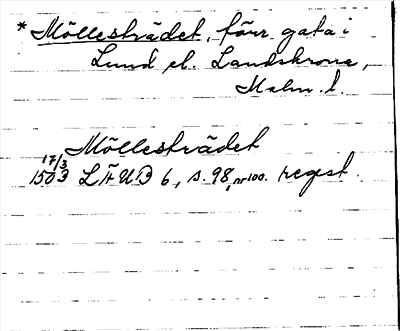 * Möllesträdet, förr gata i
Lund el. Landskrona,
Malm. l.
Möllesträdet
17/3
1503 LÄUB 6, s. 98, nr 100. regest.